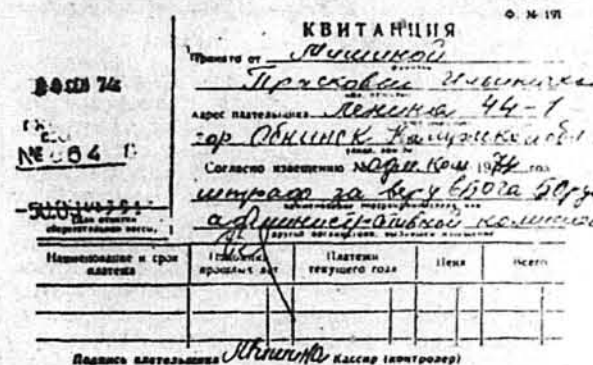 Ф. № 191
КВИТАНЦИЯ
Принято от Мишиной
Прасковьи Ильиничны
Адрес плательщика Ленина 44-1
гор Обнинск Калужской обл
Согласно извещению № адм. ком. 1974 год
штраф за веру в Бога 50 руб
административной комиссией
74
№ 064
-50.0
Для отметок
сберегательной кассы,
Наименование и срок платежа
прошлых лет
Платежи текущего года
Пеня
Всего
Подпись плательщика Мишина Кассир (контролер)